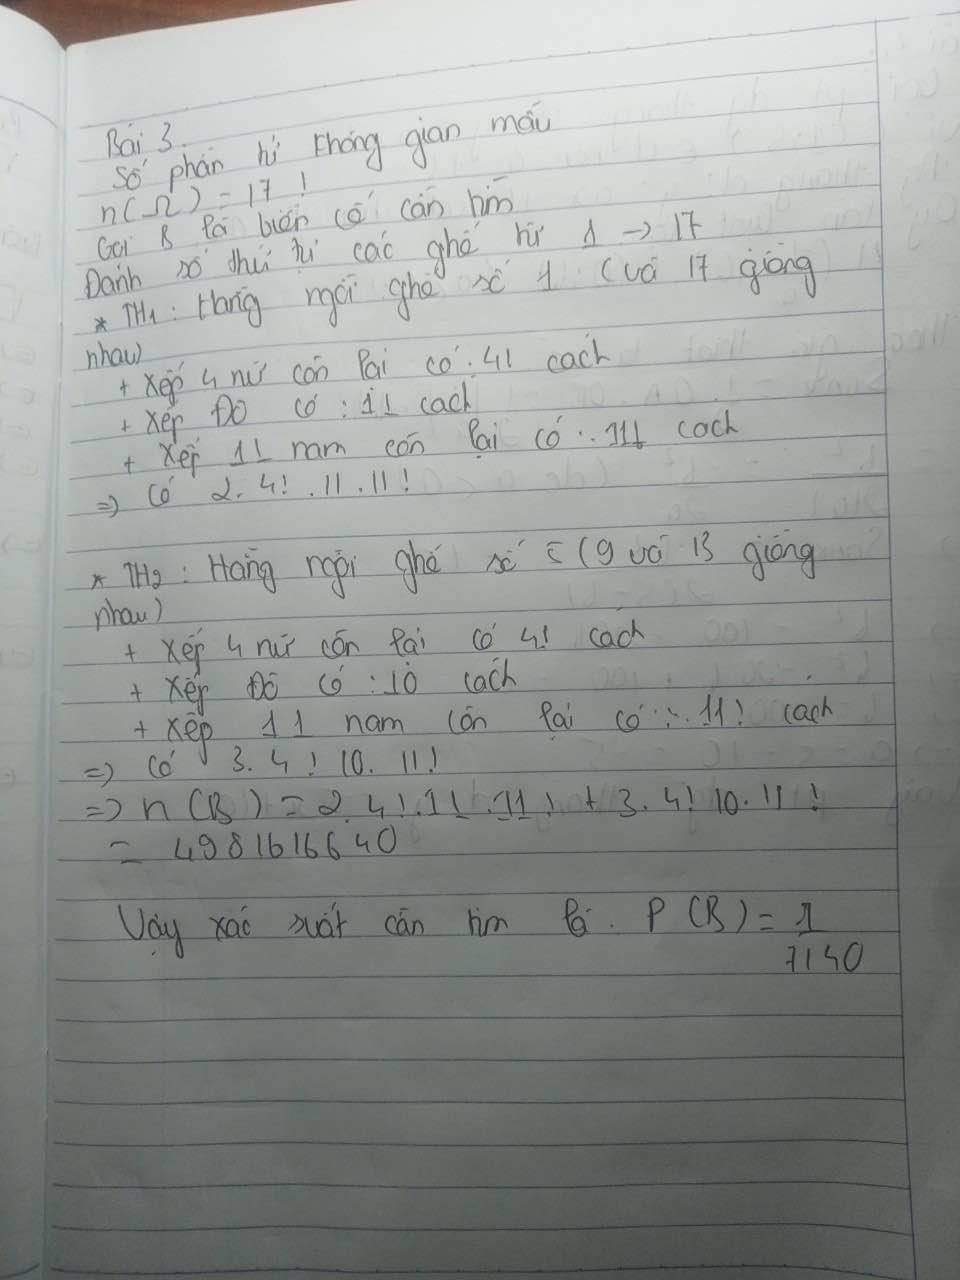 Bài 3.
Số phần tử không gian mẫu
n(Ω) = 17!
Gọi B là biến cố cần tìm
Đánh số thứ tự các ghế từ 1 → 17
* TH1: Hằng ngồi ghế số 1 (với 17 giống
nhau)
+ Xếp 4 nữ còn lại có: 4! cách
+ Xếp Đô có: 11 cách
+ Xếp 11 nam còn lại có: 11! cách
=> Có 2. 4! . 11 . 11!
* TH2: Hằng ngồi ghế số 5 (9 với 13 giống
nhau)
+ Xếp 4 nữ còn lại có 4! cách
+ Xếp Đô có: 10 cách
+ Xếp 11 nam còn lại có: 11! cách
=> Có 3. 4! 10. 11!
=> n(B) = 2. 4! . 11 . 11! + 3. 4! 10. 11!
= 49816166 40
Vậy xác suất cần tìm là: P(B) = 1/7140